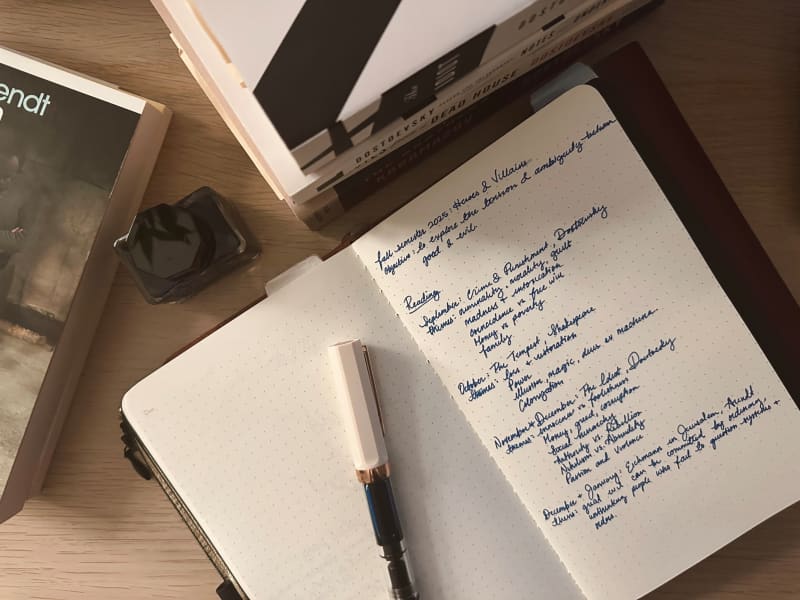 endt
DOSTOEVSKY
NOTES
DOSTOEVSKY
DEAD HOUSE
DOSTOEVSKY
KARAMAZOV
Fall semester 2025: Heroes & Villains
Objective: to explore the tension & ambiguity between
good & evil
Reading
September: Crime & Punishment, Dostoevsky
themes: criminality, morality, guilt
madness & intoxication
coincidence vs free will
Money vs poverty
family
October: The Tempest, Shakespeare
themes: loss & restoration
Power
illusion, magic, deus ex machina
Colonization
November & December: The Idiot, Dostoevsky
themes: innocence vs foolishness
Money, greed, corruption
Social hierarchy
Authority vs. Rebellion
Nihilism vs Absurdity
Passion and Violence
December & January: Eichmann in Jerusalem, Arendt
theme: great evil can be committed by ordinary,
unthinking people who fail to question systems +